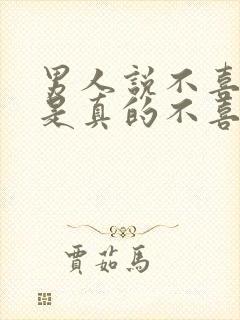 男人説不喜
是真的不喜
賈茹馬